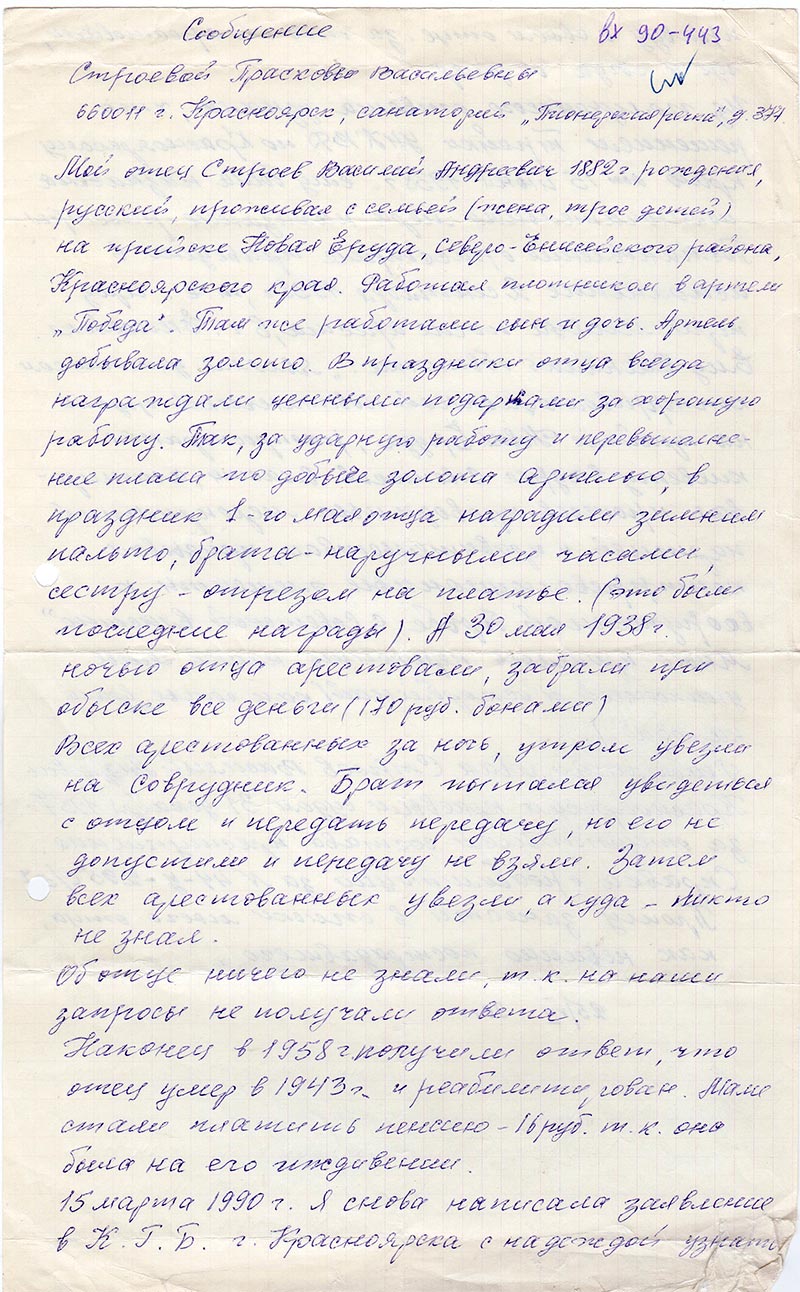 Сообщение
вх 90-443
Строевой Прасковьи Васильевны
660011 г. Красноярск, санаторий „Пионерская речка", д. 377
Мой отец Строев Василий Андреевич 1882 г. рождения,
русский, проживал с семьей (жена, трое детей)
на прииске Новая Еруда, Северо-Енисейского района,
Красноярского края. Работал плотником в артели
„Победа". Там же работали сын и дочь. Артель
добывала золото. В праздники отца всегда
награждали ценными подарками за хорошую
работу. Так, за ударную работу и перевыполне-
ние плана по добыче золота артелью, в
праздник 1-го мая отца наградили зимним
пальто, брата - наручными часами,
сестру - отрезом на платье. (это были
последние награды). А 30 мая 1938 г.
ночью отца арестовали, забрали при
обыске все деньги (170 руб. бонами)
Всех арестованных за ночь, утром увезли
на Соврудник. Брат пытался увидеться
с отцом и передать передачу, но его не
допустили и передачу не взяли. Затем
всех арестованных увезли, а куда - никто
не знал.
Об отце ничего не знали, т.к. на наши
запросы не получали ответа.
Наконец в 1958 г. получили ответ, что
отец умер в 1943 г. и реабилитирован. Маме
стали платить пенсию - 16 руб. т.к. она
была на его иждивении.
15 марта 1990 г. Я снова написала заявление
в К.Г.Б. г. Красноярска с надеждой узнать